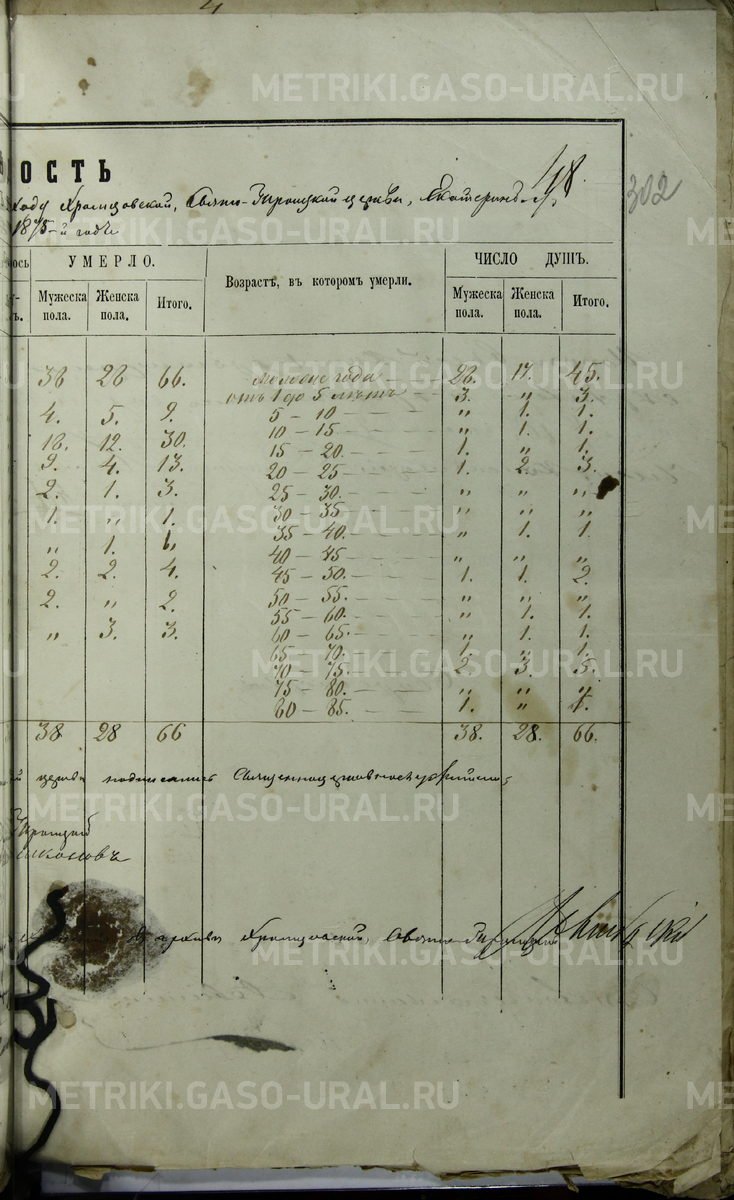 METRIKI.GASO-URAL.RU
ОСТЬ
418.
302
Свято-Троицкой церкви, Екатеринб.
1875-й годъ
УМЕРЛО. Возрастъ, въ которомъ умерли. ЧИСЛО ДУШЪ.
Мужеска пола. Женска пола. Итого. Мужеска пола. Женска пола. Итого.
38 28 66. моложе года 28. 17. 45.
отъ 1 до 5 лѣтъ 3. " 3.
4. 5. 9. 5 – 10 " 1. 1.
10 – 15 " 1. 1.
18. 12. 30. 15 – 20. 1. " 1.
9. 4. 13. 20 – 25 1. 2 3.
2. 1. 3. 25 – 30. " " "
1. " 1. 30 – 35 " " "
35 – 40. " 1. 1.
" 1. 1. 40 – 45 " " "
2. 2. 4. 45 – 50. 1. 1. 2.
2. " 2. 50 – 55. " " "
55 – 60. " 1. 1.
" 3. 3. 60 – 65. " 1. 1.
65 – 70. 1. " 1.
70 – 75. 2. 3. 5.
75 – 80. " " "
80 – 85. 1. " 1.
38 28 66 38. 28. 66.
церкви